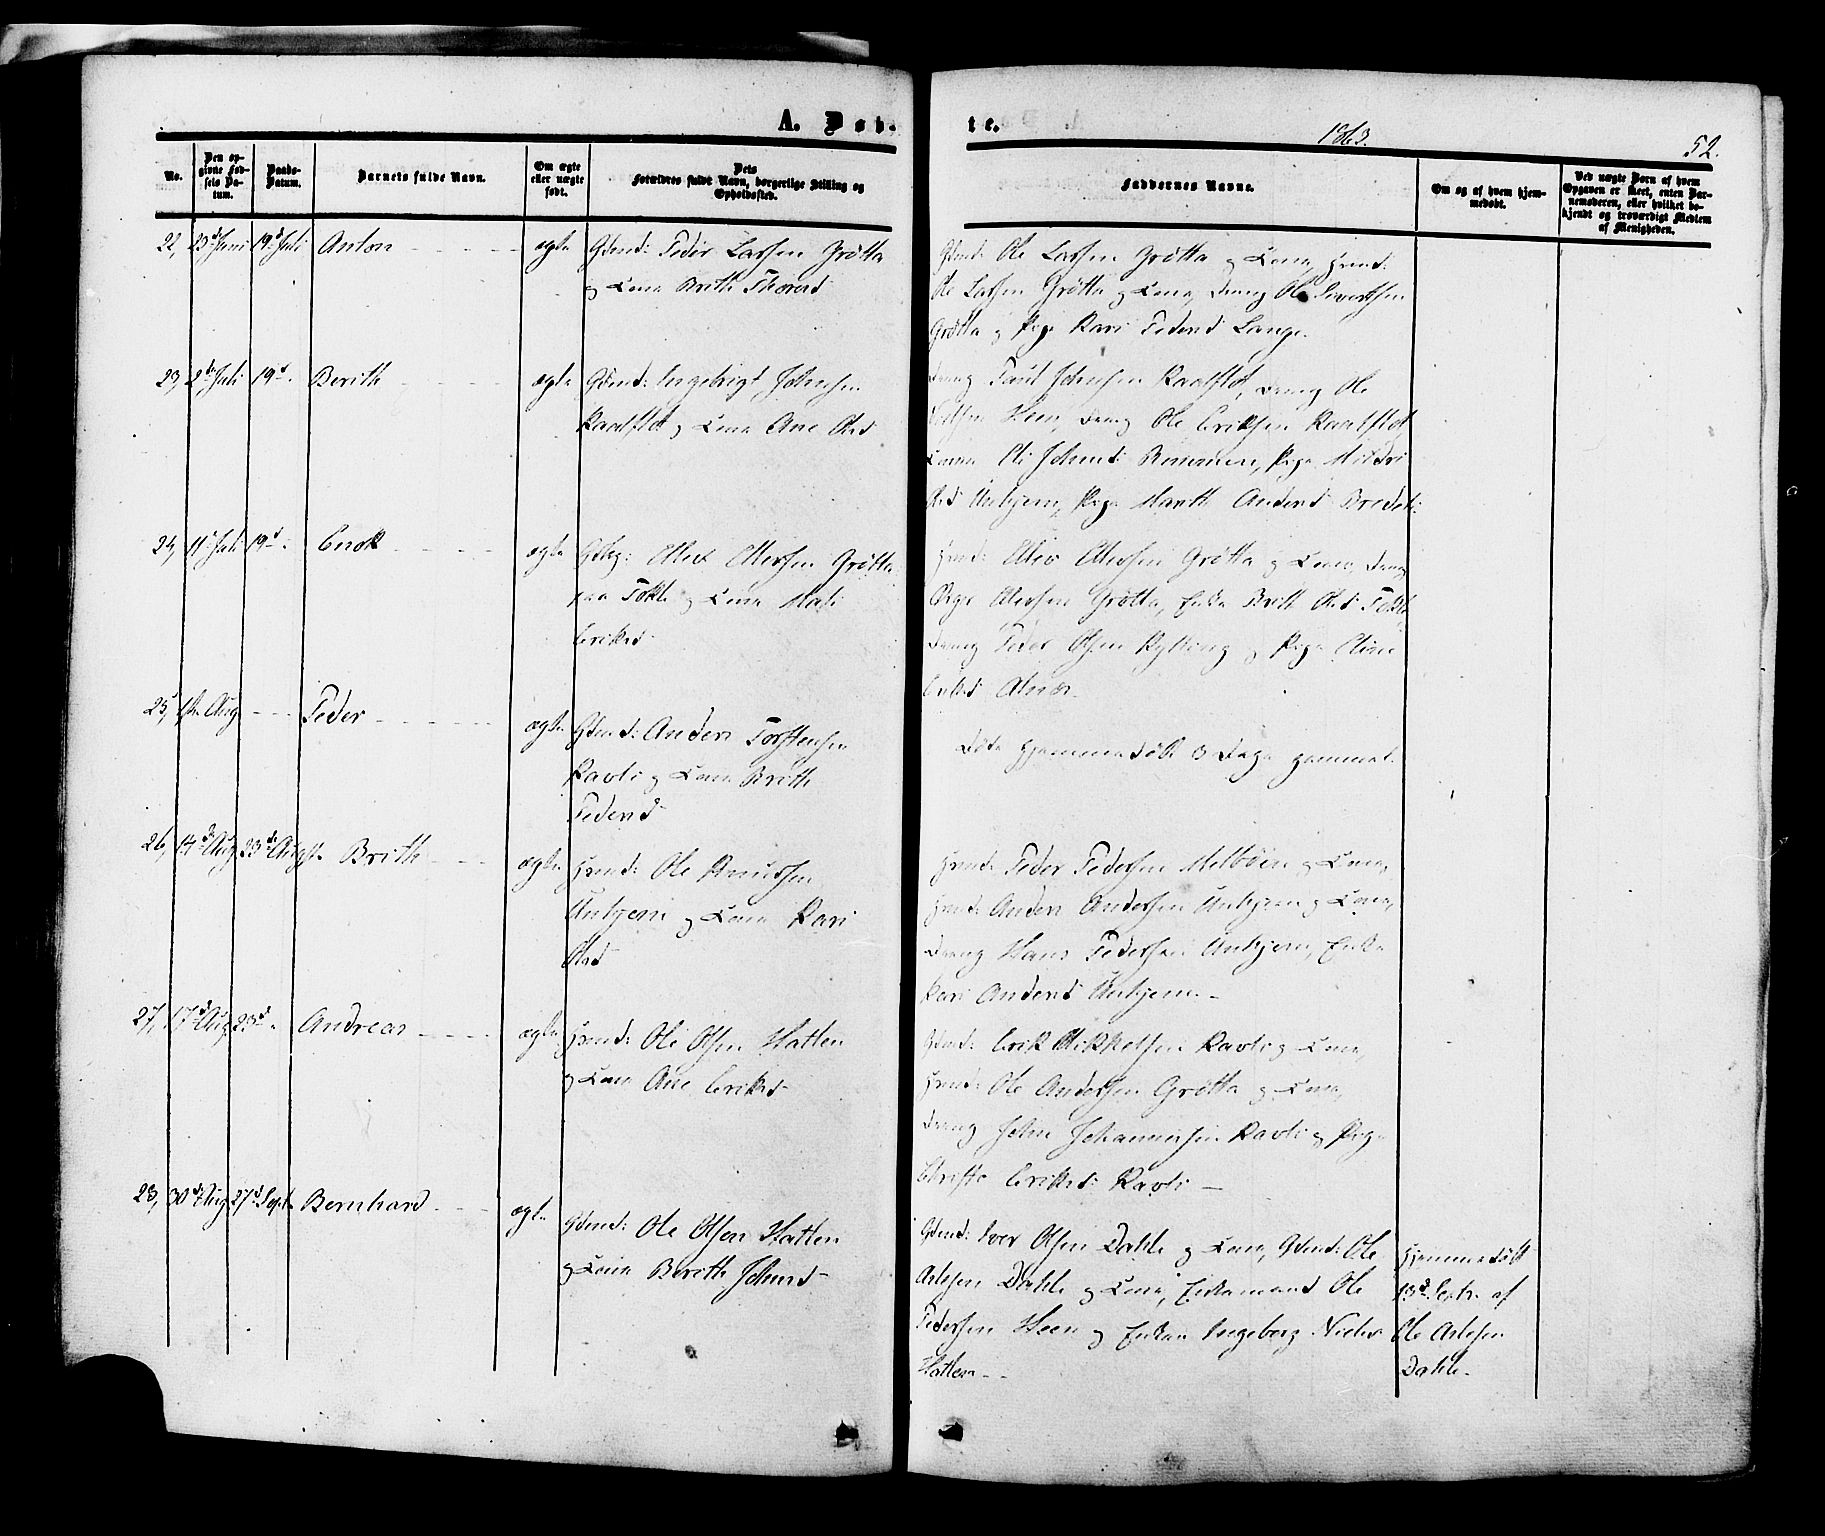 A. Døb-
te.
1863.
52.
No.
Den op-
givne Fød-
sels Da-
tum.
Daabs-
Datum.
Barnets fulde Navn.
Om ægte
eller uægte
født.
Dets
Forældres fulde Navn, borgerlige Stilling og
Opholdssted.
Faddernes Navne.
Om og af hvem hjem-
medøbt.
Ved uægte Børn af hvem
Opgaven er skeet, enten Bar-
nemoderen, eller hvilket be-
kjendt og troværdigt Medlem
af Menigheden.
22, 23d Juni 19d Juli Anton ægte Gbmd: Peder Larsen Grøtta
og Kone Brith Thorsd
Gbmd: Ole Larsen Grøtta og Kone, Hmd:
Ole Larsen Grøtta og Kone, Dreng Ole Sivertsen
Grøtta og Pige Kari Pedersd Lange.
23, 2de Juli 19d Berith ægte Gbmd: Ingebrigt Johnsen
og Kone Ane Olsd
Dreng Paul Johnsen Dreng Ole
Heen, Dreng Ole Eriksen
Johnsd Pige Mildri
Olsd Unhjem, Pige Marith Andersd
24, 11 Juli 19d Enok ægte Ottersen Grøtta
paa og Kone Mali
Eriksd
Hmd: Ottersen Grøtta og Kone, Dreng
Ottersen Grøtta, Enke Brith Olsd
Dreng Peder Olsen og Pige
Eriksd
25, 1ste Aug Peder ægte Gbmd: Anders Torstensen
Ravli og Kone Brith
Pedersd
Døde hjemmedøbt 3 Dage gammel.
26, 14d Aug 23de Augst. Brith ægte Hmd: Ole Knudsen
Unhjem og Kone Kari
Olsd
Hmd: Peder Pedersen Melbøen og Kone,
Hmd: Anders Andersen Unhjem og Kone,
Dreng Hans Pedersen Unhjem, Enke
Kari Andersd Unhjem.
27, 17d Aug 23d Andreas ægte Hmd: Ole Olsen Hatlen
og Kone Ane Eriksd
Gbmd: Erik Mikkelsen Ravli og Kone,
Hmd: Ole Andersen Grøtta og Kone,
Dreng John Johannesen Ravli og Pige
Eriksd: Ravli
28, 30d Aug 27d Sept. Bernhard ægte Gbmd: Ole Olsen Hatlen
og Kone Berith Johnsd
Gbmd: Iver Olsen Dahle og Kone, Gbmd: Ole
Aslesen Dahle og Kone, Enkemand Ole
Pedersen Heen og Enken Ingeborg
Hatlen
Hjemmedøbt
13d Septr. af
Ole Aslesen
Dahle.